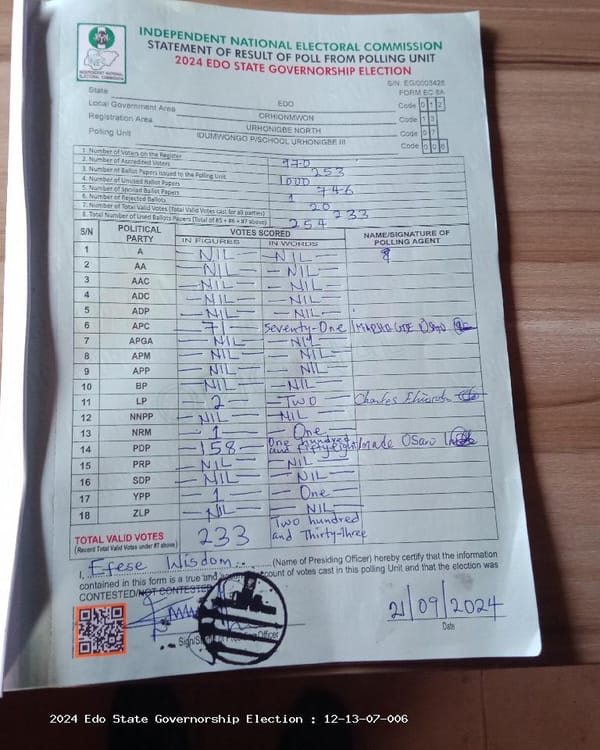 INDEPENDENT NATIONAL ELECTORAL COMMISSION
STATEMENT OF RESULT OF POLL FROM POLLING UNIT
2024 EDO STATE GOVERNORSHIP ELECTION
INDEPENDENT NATIONAL ELECTORAL COMMISSION
S/N: EG/0003426
FORM EC 8A
State EDO Code 012
Local Government Area ORHIONMWON Code 13
Registration Area URHONIGBE NORTH Code 07
Polling Unit IDUMWONGO P/SCHOOL URHONIGBE III Code 006
1. Number of Voters on the Register 970
2. Number of Accredited Voters 253
3. Number of Ballot Papers Issued to the Polling Unit 1000
4. Number of Unused Ballot Papers 746
5. Number of Spoiled Ballot Papers 1
6. Number of Rejected Ballots 20
7. Number of Total Valid Votes (Total Valid Votes cast for all parties) 233
8. Total Number of Used Ballots Papers (Total of #5 + #6 + #7 above) 254
S/N POLITICAL PARTY VOTES SCORED NAME/SIGNATURE OF POLLING AGENT
IN FIGURES IN WORDS
1 A NIL NIL
2 AA NIL NIL
3 AAC NIL NIL
4 ADC NIL NIL
5 ADP NIL NIL
6 APC 71 Seventy-One
7 APGA NIL NIL
8 APM NIL NIL
9 APP NIL NIL
10 BP NIL NIL
11 LP 2 Two Charles
12 NNPP NIL NIL
13 NRM 1 One
14 PDP 158 One hundred and fifty eight
15 PRP NIL NIL
16 SDP NIL NIL
17 YPP 1 One
18 ZLP NIL NIL
TOTAL VALID VOTES 233 Two hundred and Thirty-Three
(Record Total Valid Votes under #7 above)
I, Efese Wisdom (Name of Presiding Officer) hereby certify that the information
contained in this form is a true and account of votes cast in this polling Unit and that the election was
CONTESTED/NOT CONTESTED
Officer
21/09/2024
Date
2024 Edo State Governorship Election : 12-13-07-006